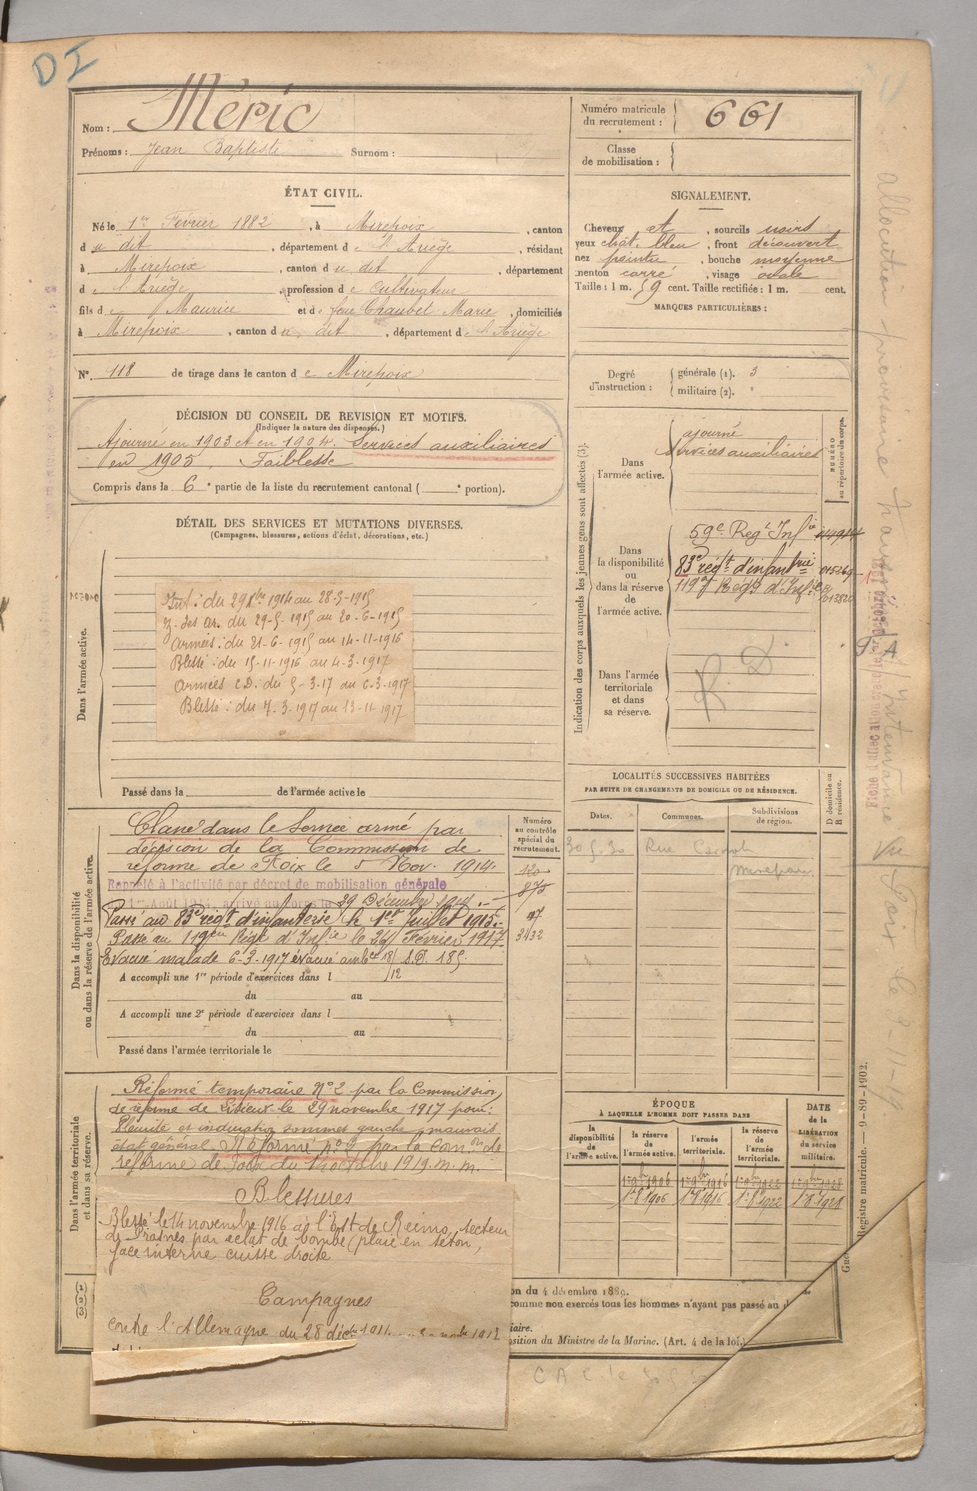 DI
Nom : Méric
Prénoms : Jean Baptiste Surnom :
Numéro matricule du recrutement : 661
Classe de mobilisation :
ÉTAT CIVIL.
Né le 1er Février 1882, à Mirepoix, canton
du dit, département de l'Ariège, résidant
à Mirepoix, canton du dit, département
de l'Ariège, profession de Cultivateur
fils de Maurice et de feue Chaubet Marie, domiciliés
à Mirepoix, canton du dit, département de l'Ariège
N° 118 de tirage dans le canton de Mirepoix
SIGNALEMENT.
Cheveux et, sourcils noirs
yeux chât. bleu, front découvert
nez pointu, bouche moyenne
menton carré, visage ovale
Taille : 1 m. 59 cent. Taille rectifiée : 1 m. cent.
MARQUES PARTICULIÈRES :
Degré d'instruction : générale (1). 3
militaire (2).
DÉCISION DU CONSEIL DE REVISION ET MOTIFS.
(Indiquer la nature des dispenses.)
Ajourné en 1903 et en 1904. Services auxiliaires
en 1905. Faiblesse
Compris dans la 6e partie de la liste du recrutement cantonal ( e portion).
DÉTAIL DES SERVICES ET MUTATIONS DIVERSES.
(Campagnes, blessures, actions d'éclat, décorations, etc.)
Dans l'armée active.
Int : du 29 Xbre 1914 au 28-5-1915
Z. des ar. du 29-5-1915 au 20-6-1915
Armées : du 21-6-1915 au 14-11-1916
Blessé : du 15-11-1916 au 4-3-1917
Armées C.D. du 5-3-17 au 6-3-1917
Blessé : du 7-3-1917 au 13-11-1917
Passé dans la de l'armée active le
Indication des corps auxquels les jeunes gens sont affectés (3).
NUMÉRO au répertoire du corps.
Dans l'armée active.
ajourné
Services auxiliaires
Dans la disponibilité ou dans la réserve de l'armée active.
59e Régt Infie
83e régt d'infantrie 015269
119e Régt d'Infie
Dans l'armée territoriale et dans sa réserve.
R. D
LOCALITÉS SUCCESSIVES HABITÉES
PAR SUITE DE CHANGEMENTS DE DOMICILE OU DE RÉSIDENCE.
D domicile ou R résidence.
Dates. Communes. Subdivisions de région.
30 5 30 Rue Carnot
Mirepoix
Dans la disponibilité ou dans la réserve de l'armée active.
Numéro au contrôle spécial du recrutement.
Classé dans le Service armé par
décision de la Commission de
réforme de Foix le 5 Nov. 1914.
Rappelé à l'activité par décret de mobilisation générale
du 1er Août 1914, arrivé au corps le 29 Décembre 1914.
875
Passé au 83e régt d'infanterie le 1er Juillet 1915.
97
Passé au 119e Régt d'Infie le 26 Février 1917.
3432
Evacué malade 6-3-1917 évacué ambce 18/12 S.P. 185
A accompli une 1re période d'exercices dans l
du au
A accompli une 2e période d'exercices dans l
du au
Passé dans l'armée territoriale le
Dans l'armée territoriale et dans sa réserve.
Réformé temporaire N° 2 par la Commission
de réforme de Lisieux le 29 novembre 1917 pour :
Pleurite et induration sommet gauche, mauvais
état général. Réformé n° 2 par la Comon de
réforme de Foix du 1 octobre 1919. m. m.
Blessures
Blessé le 14 novembre 1916 à l'Est de Reims, secteur
de Prosnes par éclat de bombe (plaie en séton,
face interne cuisse droite
Campagnes
contre l'Allemagne du 28 décbre 1914
ÉPOQUE
À LAQUELLE L'HOMME DOIT PASSER DANS
la disponibilité de l'armée active. la réserve de l'armée active. l'armée territoriale. la réserve de l'armée territoriale.
DATE de la LIBÉRATION du service militaire.
1er 8bre 1906 1er 8bre 1916 1er 8bre 1922 1er 8bre 1928
(1)
(2)
(3)
on du 4 décembre 1889.
comme non exercés tous les hommes n'ayant pas passé au d
iaire.
osition du Ministre de la Marine. (Art. 4 de la loi.)
Registre matricule. — 9-89-1902.
CAC le 30 5 30
allocution provisoire
Foix le 3-11-19